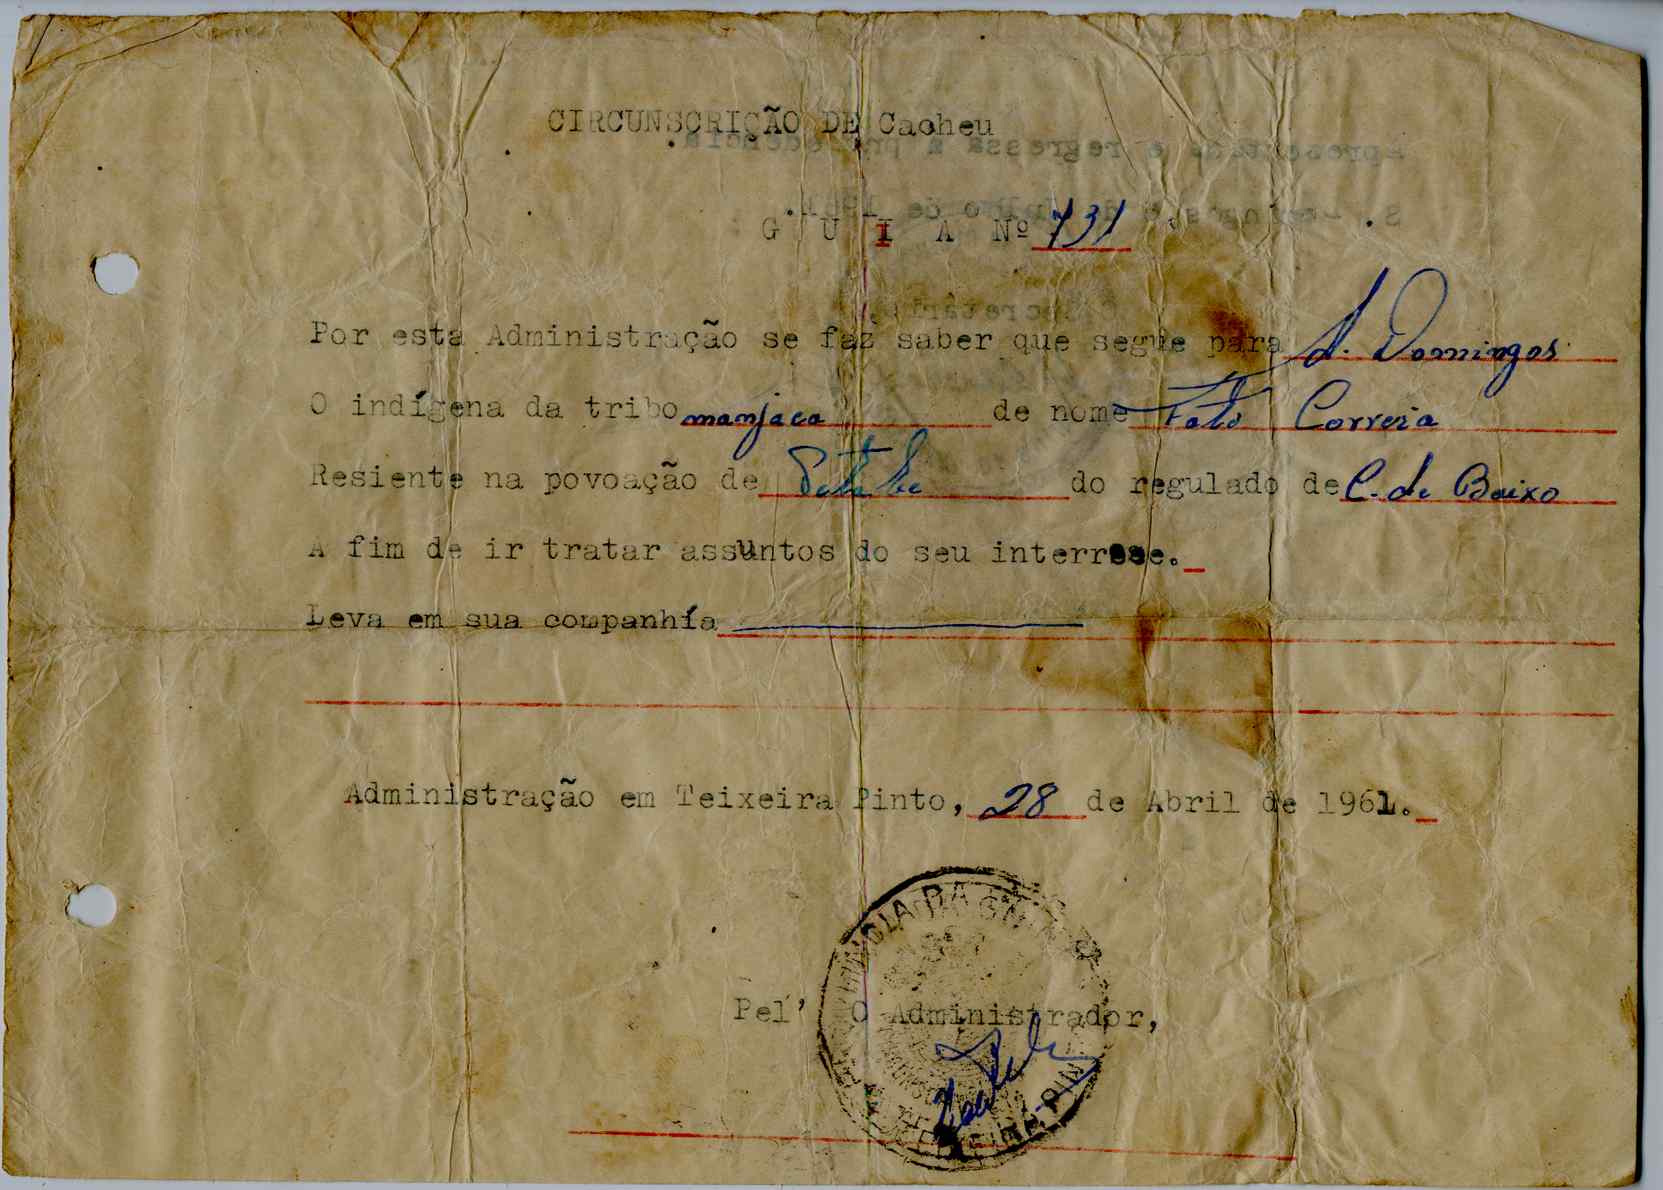 CIRCUNSCRIÇÃO DE Cacheu
G U I A Nº 731
Por esta Administração se faz saber que segue para S. Domingos
O indígena da tribo manjaca de nome Correia
Resiente na povoação de do regulado de C. de Baixo
A fim de ir tratar assuntos do seu interrese.
Leva em sua companhía
Administração em Teixeira Pinto, 28 de Abril de 1961.
PROVINCIA DA GUINÉ
Pel' O Administrador,
TEIXEIRA PINTO